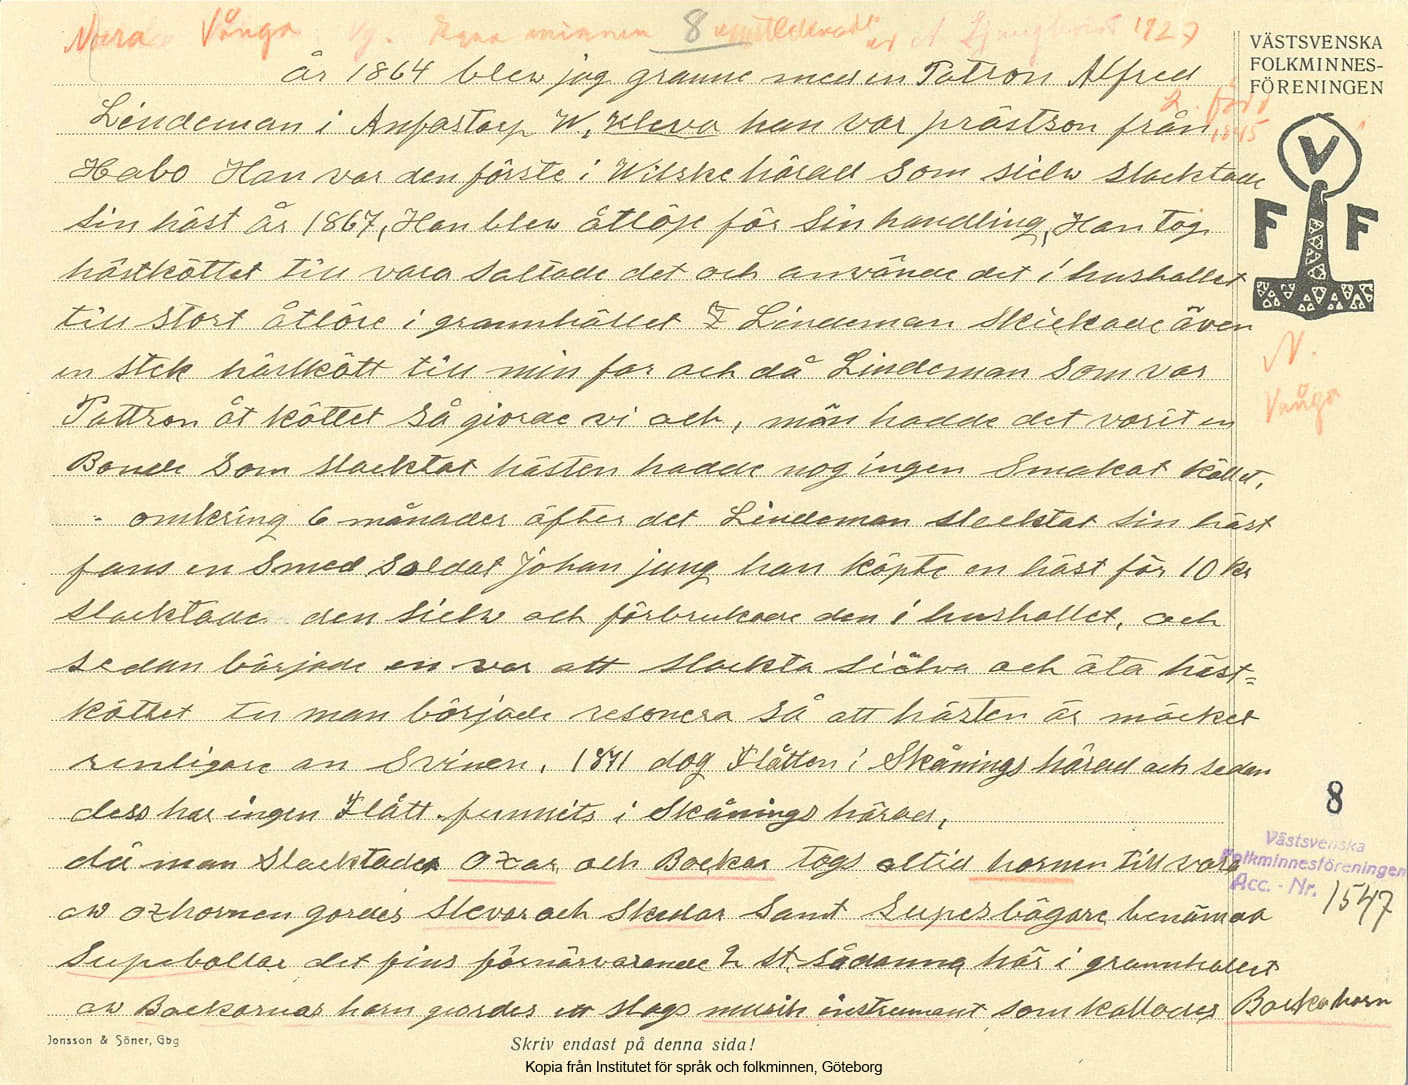 Norra Vånga Vg. Egna minnen 8 av A. Ljungkvist 1927
VÄSTSVENSKA
FOLKMINNES-
FÖRENINGEN
f. förr
1845
V
F F
N.
Vånga
år 1864 blev jag granne med en Patron Alfred
Lindeman i Anfastorp W. Kleva han var prästson från
Habo Han var den förste i Wilske härad som sielv slacktade
sin häst år 1867, Han blev åtlöje för sin handling, Han tog
hästköttet till vara saltade det och använde det i hushallet
till stort åtlöje i grannhållet Lindeman skickade även
en stek hästkött till min far och då Lindeman som var
Pattron åt köttet så giorde vi och, män hadde det varit en
Bonde som slacktat hästen hadde nog ingen smakat köttet,
omkring 6 månader äfter det Lindeman slacktat sin häst
fans en Smed Soldat Johan jung han köpte en häst för 10 kr
slacktade den sielv och förbrukade den i hushallet, och
sedan började en var att slackta siälva och äta häst=
köttet till man började resonera så att hästen är mäcket
renligare än Svinen. 1871 dog Flåtten i Skånings härad och sedan
dess har ingen Flått funnits i Skånings härad,
då man Slacktade Oxar och Bockar togs altid hornen till vara
av oxhornen gordes Slevar och Skedar samt Supesbägare benämda
Supebollar det fins förnärvarende 2 st. sådanna här i grannhallet
av Bockarnas horn giordes ett slags musik instrument som kallades Bockahorn
8
Västsvenska
Folkminnesföreningen
Acc. - Nr. 1547
Jonsson & Söner, Gbg
Skriv endast på denna sida!
Kopia från Institutet för språk och folkminnen, Göteborg